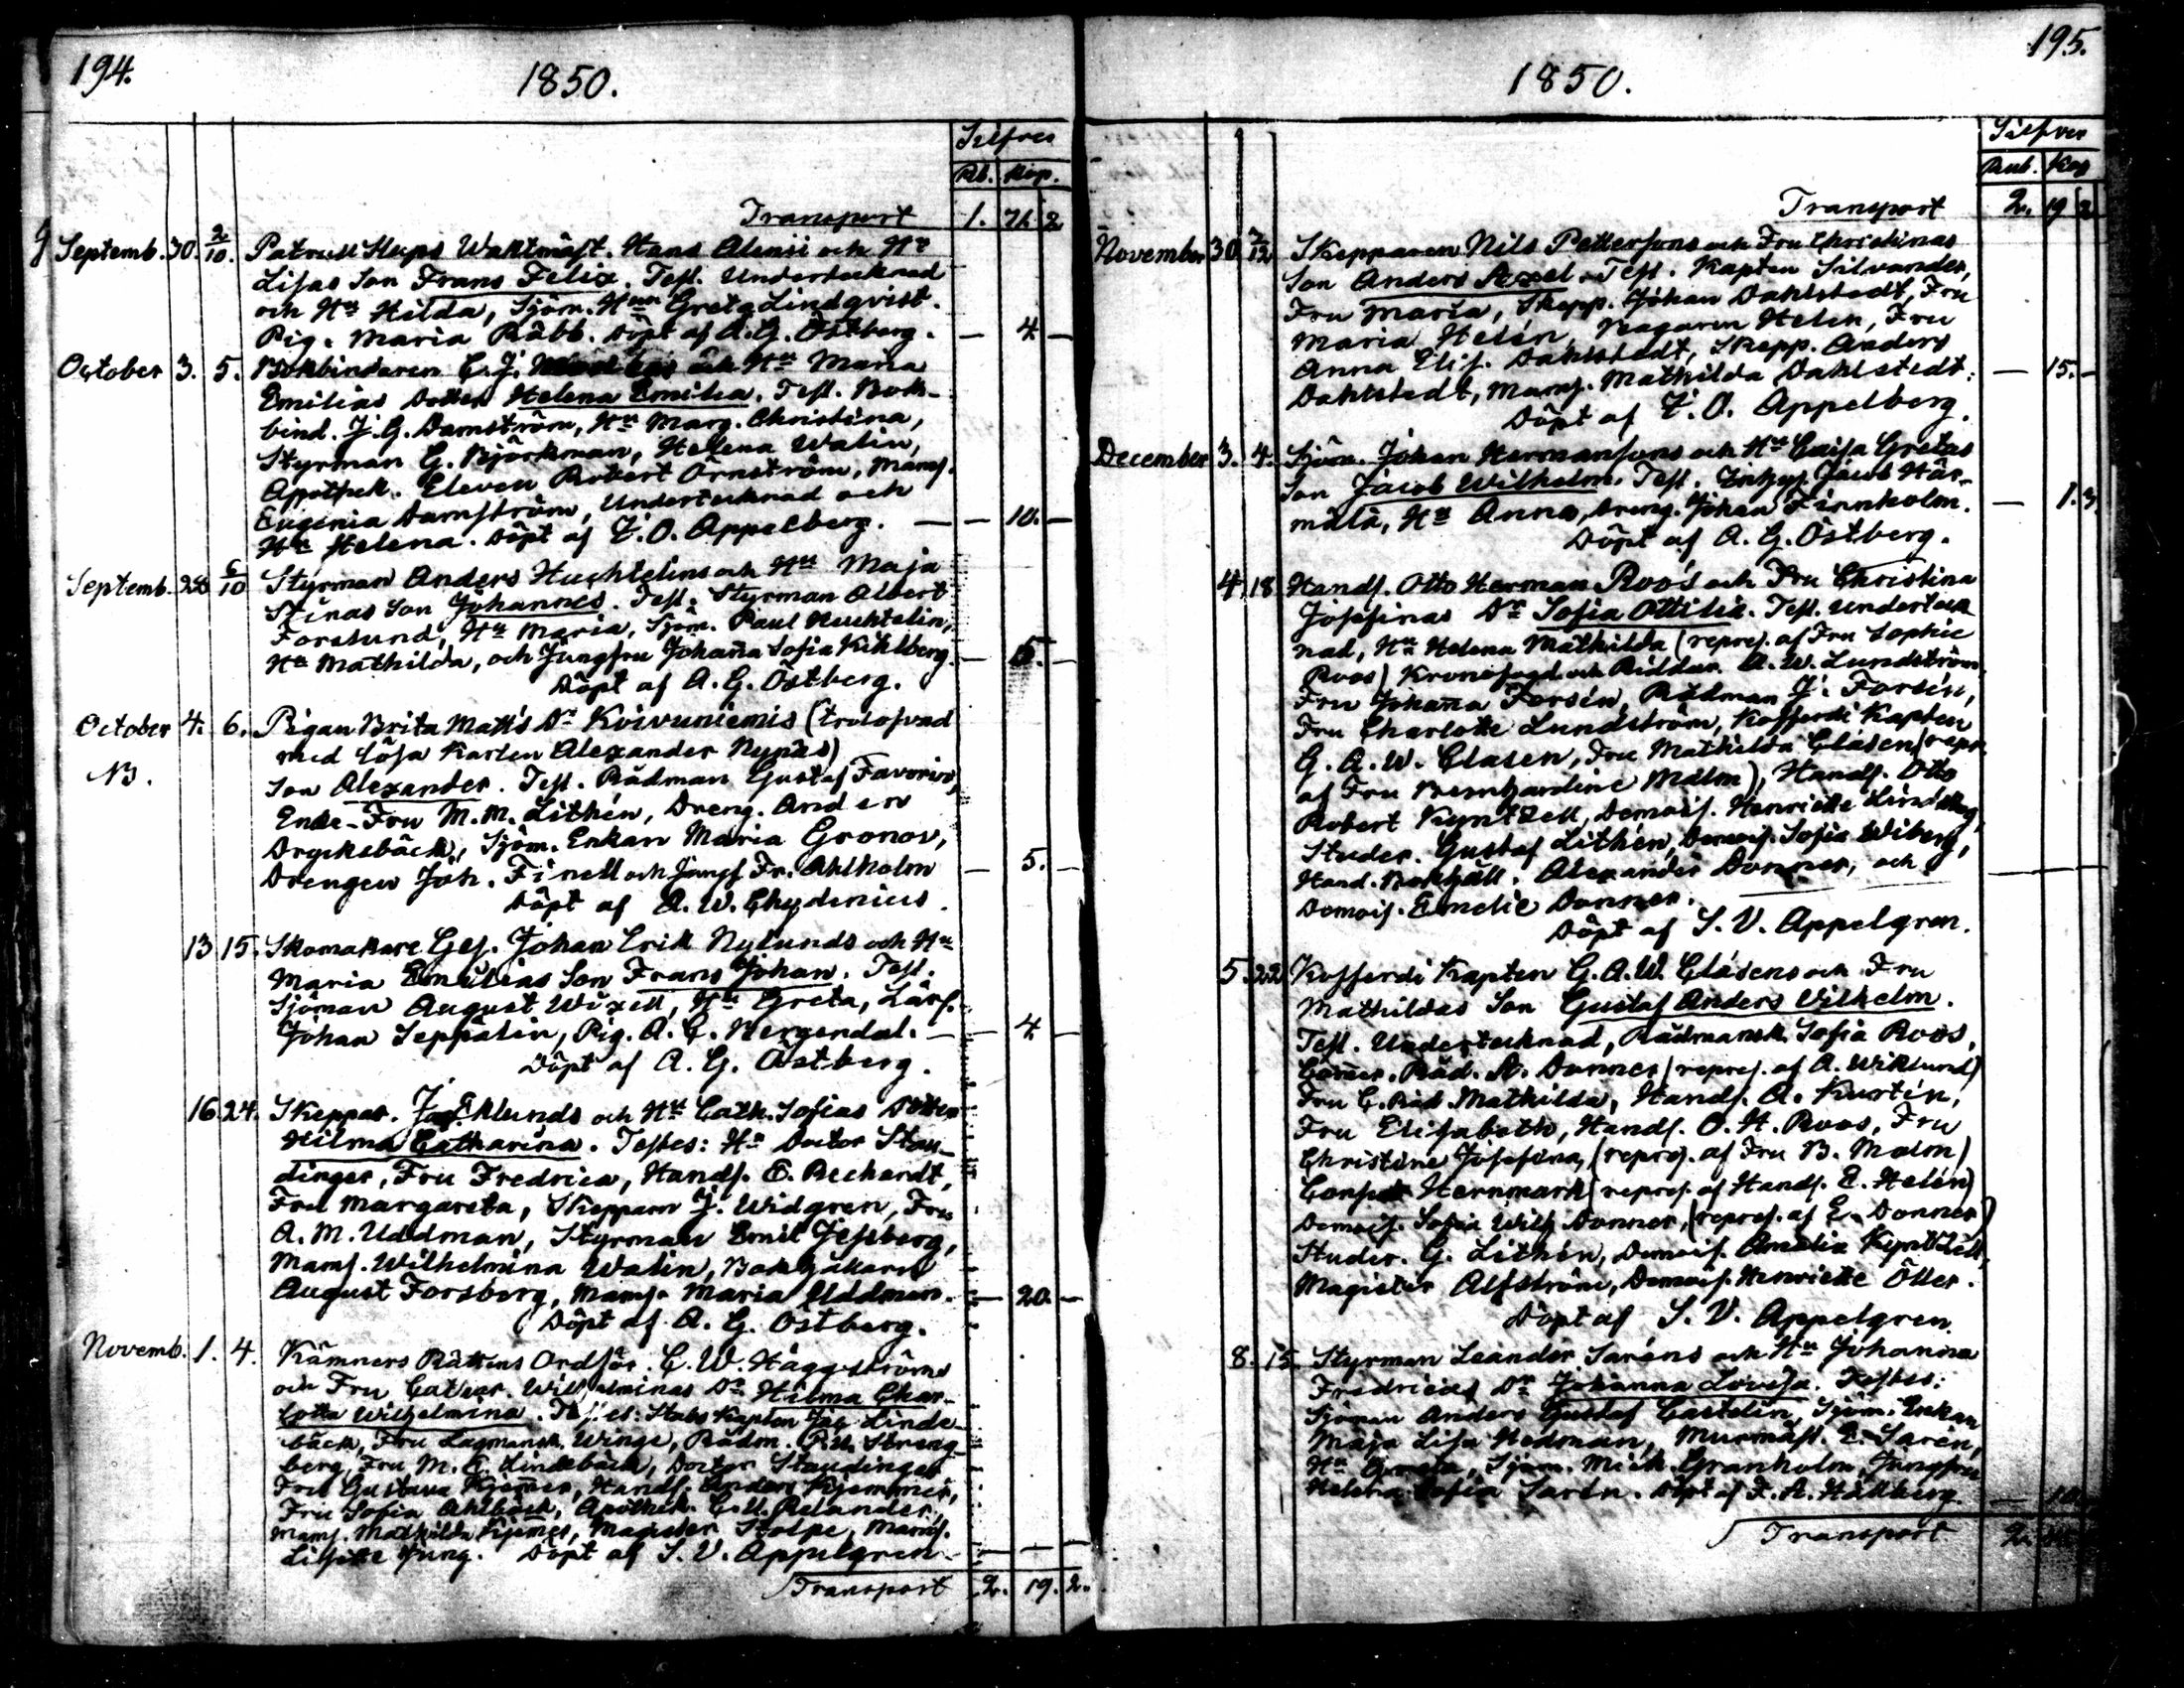 194.
1850.
Silfver
Rb. Kop.
Transport 1. 71 2
Septemb. 30. 2/10. Patrull Slups Waktmäst. Hans Alenii och Hu
Lisas Son Frans Felix. Test. Undertecknad
och Hu Hilda, Sjöm. Hu Greta Lindqvist.
Pig. Maria Räbb. Döpt af A. G. Östberg. — 4 —
October 3. 5. Bokbindaren C. J. och Hu Maria
Emilias Dotter Helena Emilia. Test. Bok-
bind. J. G. Damström, Hu Marg. Christina,
Styrman G. Björkman, Helena Walin,
Apothek. Eleven Robert Ornström, Mams.
Eugenia Damström, Undertecknad och
Hu Helena. Döpt af F. O. Appelberg. — — 10. —
Septemb. 28 6/10 Styrman Anders Huchtelins och Hu Maja
Stinas Son Johannes. Test. Styrman Albert
Forslund, Hu Maria, Sjöm. Paul Huchtelin,
Hu Mathilda, och Jungfru Johana Sofia Kihlberg. — 15. —
Döpt af A. G. Östberg.
October 4. 6. Pigan Brita Matts Dr Koivuniemis (trolofvad
med lösa Karlen Alexander Nynäs)
NB.
Son Alexander. Test. Rådman Gustaf Favorin,
Enke-Fru M. M. Lithén, Dreng. Anders
Drycksbäck, Sjöm. Enkan Maria Gronov,
Drengen Joh. Finell och Jungf Fr. Ahlholm — 5. —
Döpt af A. W. Chydenius.
13 15. Skomakare Ges. Johan Erik Nylunds och Hu
Maria Emilias Son Frans Johan. Test.
Sjöman August Wixell, Hu Greta, Lärl.
Johan Seppälin, Pig. A. C. Hergendal. — — 4 —
Döpt af A. G. Östberg.
16. 24. Skeppar. Jac. Eklunds och Hu Cath. Sofias Dotter
Hilma Catharina. Testes: Hr Doctor Stau-
dinger, Fru Fredrica, Handl. E. Rechardt,
Fru Margareta, Skepparn J. Widgren, Fru
A. M. Uddman, Styrman Emil Jessberg,
Mams. Wilhelmina Walin, Bokhållaren
August Forsberg, Mams. Maria Uddman. — 20. —
Döpt af A. G. Östberg.
Novemb. 1. 4. Kämners Rättens Ordför. C. W. Häggströms
och Fru Cathar. Wilhelminas Dr Hilma Char-
lotta Wilhelmina. Testes: Stabs Kapten Linde-
bäck, Fru Lagmansk. Winge, Rådm. Streng-
berg, Fru M. C. Lindebäck, Doctor Staudinger
Fru Gustava Kjemer, Handl. Anders Kjemmer,
Fru Sofia Ahlbäck, Apothek. Relander,
Mams. Mathilda Kjemer, Magister Stolpe, Mams.
Lisette Jung. Döpt af S. V. Appelgren — — —
Transport 2. 19. 2.
195.
1850.
Silfver
Rub. Kop
Transport 2. 19 2
November 30 2/12 Skepparen Nils Pettersons och Fru Christinas
Son Anders Axel. Test. Kapten Silvander,
Fru Maria, Skepp. Johan Dahlstedt, Fru
Maria Helén, Helén, Fru
Anna Elis. Dahlstedt, Skepp. Anders
Dahlstedt, Mams. Mathilda Dahlstedt. — 15. —
Döpt af F. O. Appelberg.
December 3. 4. Sjöm. Johan Hermansons och Hu Caisa Gretas
Son Jacob Wilhelm. Test. Jacob Här-
mälä, Hu Anna, Dreng. Johan Finnholm. — 1. 3
Döpt af A. G. Östberg.
4 18 Handl. Otto Herman Roos och Fru Christina
Josefinas Dr Sofia Ottilia. Test. Underteck
nad, Hu Helena Mathilda (repres. af Fru Sophie
Roos) Kronofogd. och Riddar. A. W. Lundström
Fru Johana Forsén, Rådman J. Forsén,
Fru Charlotte Lundström, Kofferdi Kapten
G. A. W. Clasen, Fru Mathilda Clasen (repr.
af Fru Bernhardine Malm), Handl. Otto
Robert Kyntzell, Demois. Henriette
Studer. Gustaf Lithén, Demois. Sofia Wiberg,
Hand. Bokhåll. Alexander Donner, och
Demois. Emelie Donner. — —
Döpt af S. V. Appelgren.
5. 22 Kofferdi Kapten G. A. W. Clasens och Fru
Mathildas Son Gustaf Anders Vilhelm.
Test. Undertecknad, Rådmansk. Sofia Roos,
Comer. Råd. A. Donner (repres. af A. Wiklund)
Fru C. Råd. Mathilda, Handl. A. Kurtén,
Fru Elisabeth, Handl. O. H. Roos, Fru
Christine Josefina, (repres. af Fru B. Malm)
Hernmark (repres. af Handl. E. Helén)
Demois. Sofia Wilh Donner, (repres. af E. Donner)
Studer. G. Lithén, Demois. Amelia Kyntzell,
Magister Alfström, Demois. Henriette Öller.
Döpt af S. V. Appelgren.
8. 15 Styrman Leander Saréns och Hu Johanna
Fredricas Dr Johanna Lovisa. Testes:
Sjöman Anders Gustaf Castelin, Sjöm. Enkan
Maja Lisa Hedman, Murmäst. E. Sarén,
Hu Greta, Sjöm. Mich. Granholm, Jungfru
Helena Sofia Sarén. Döpt af F. A. Hällberg. —
Transport 2.